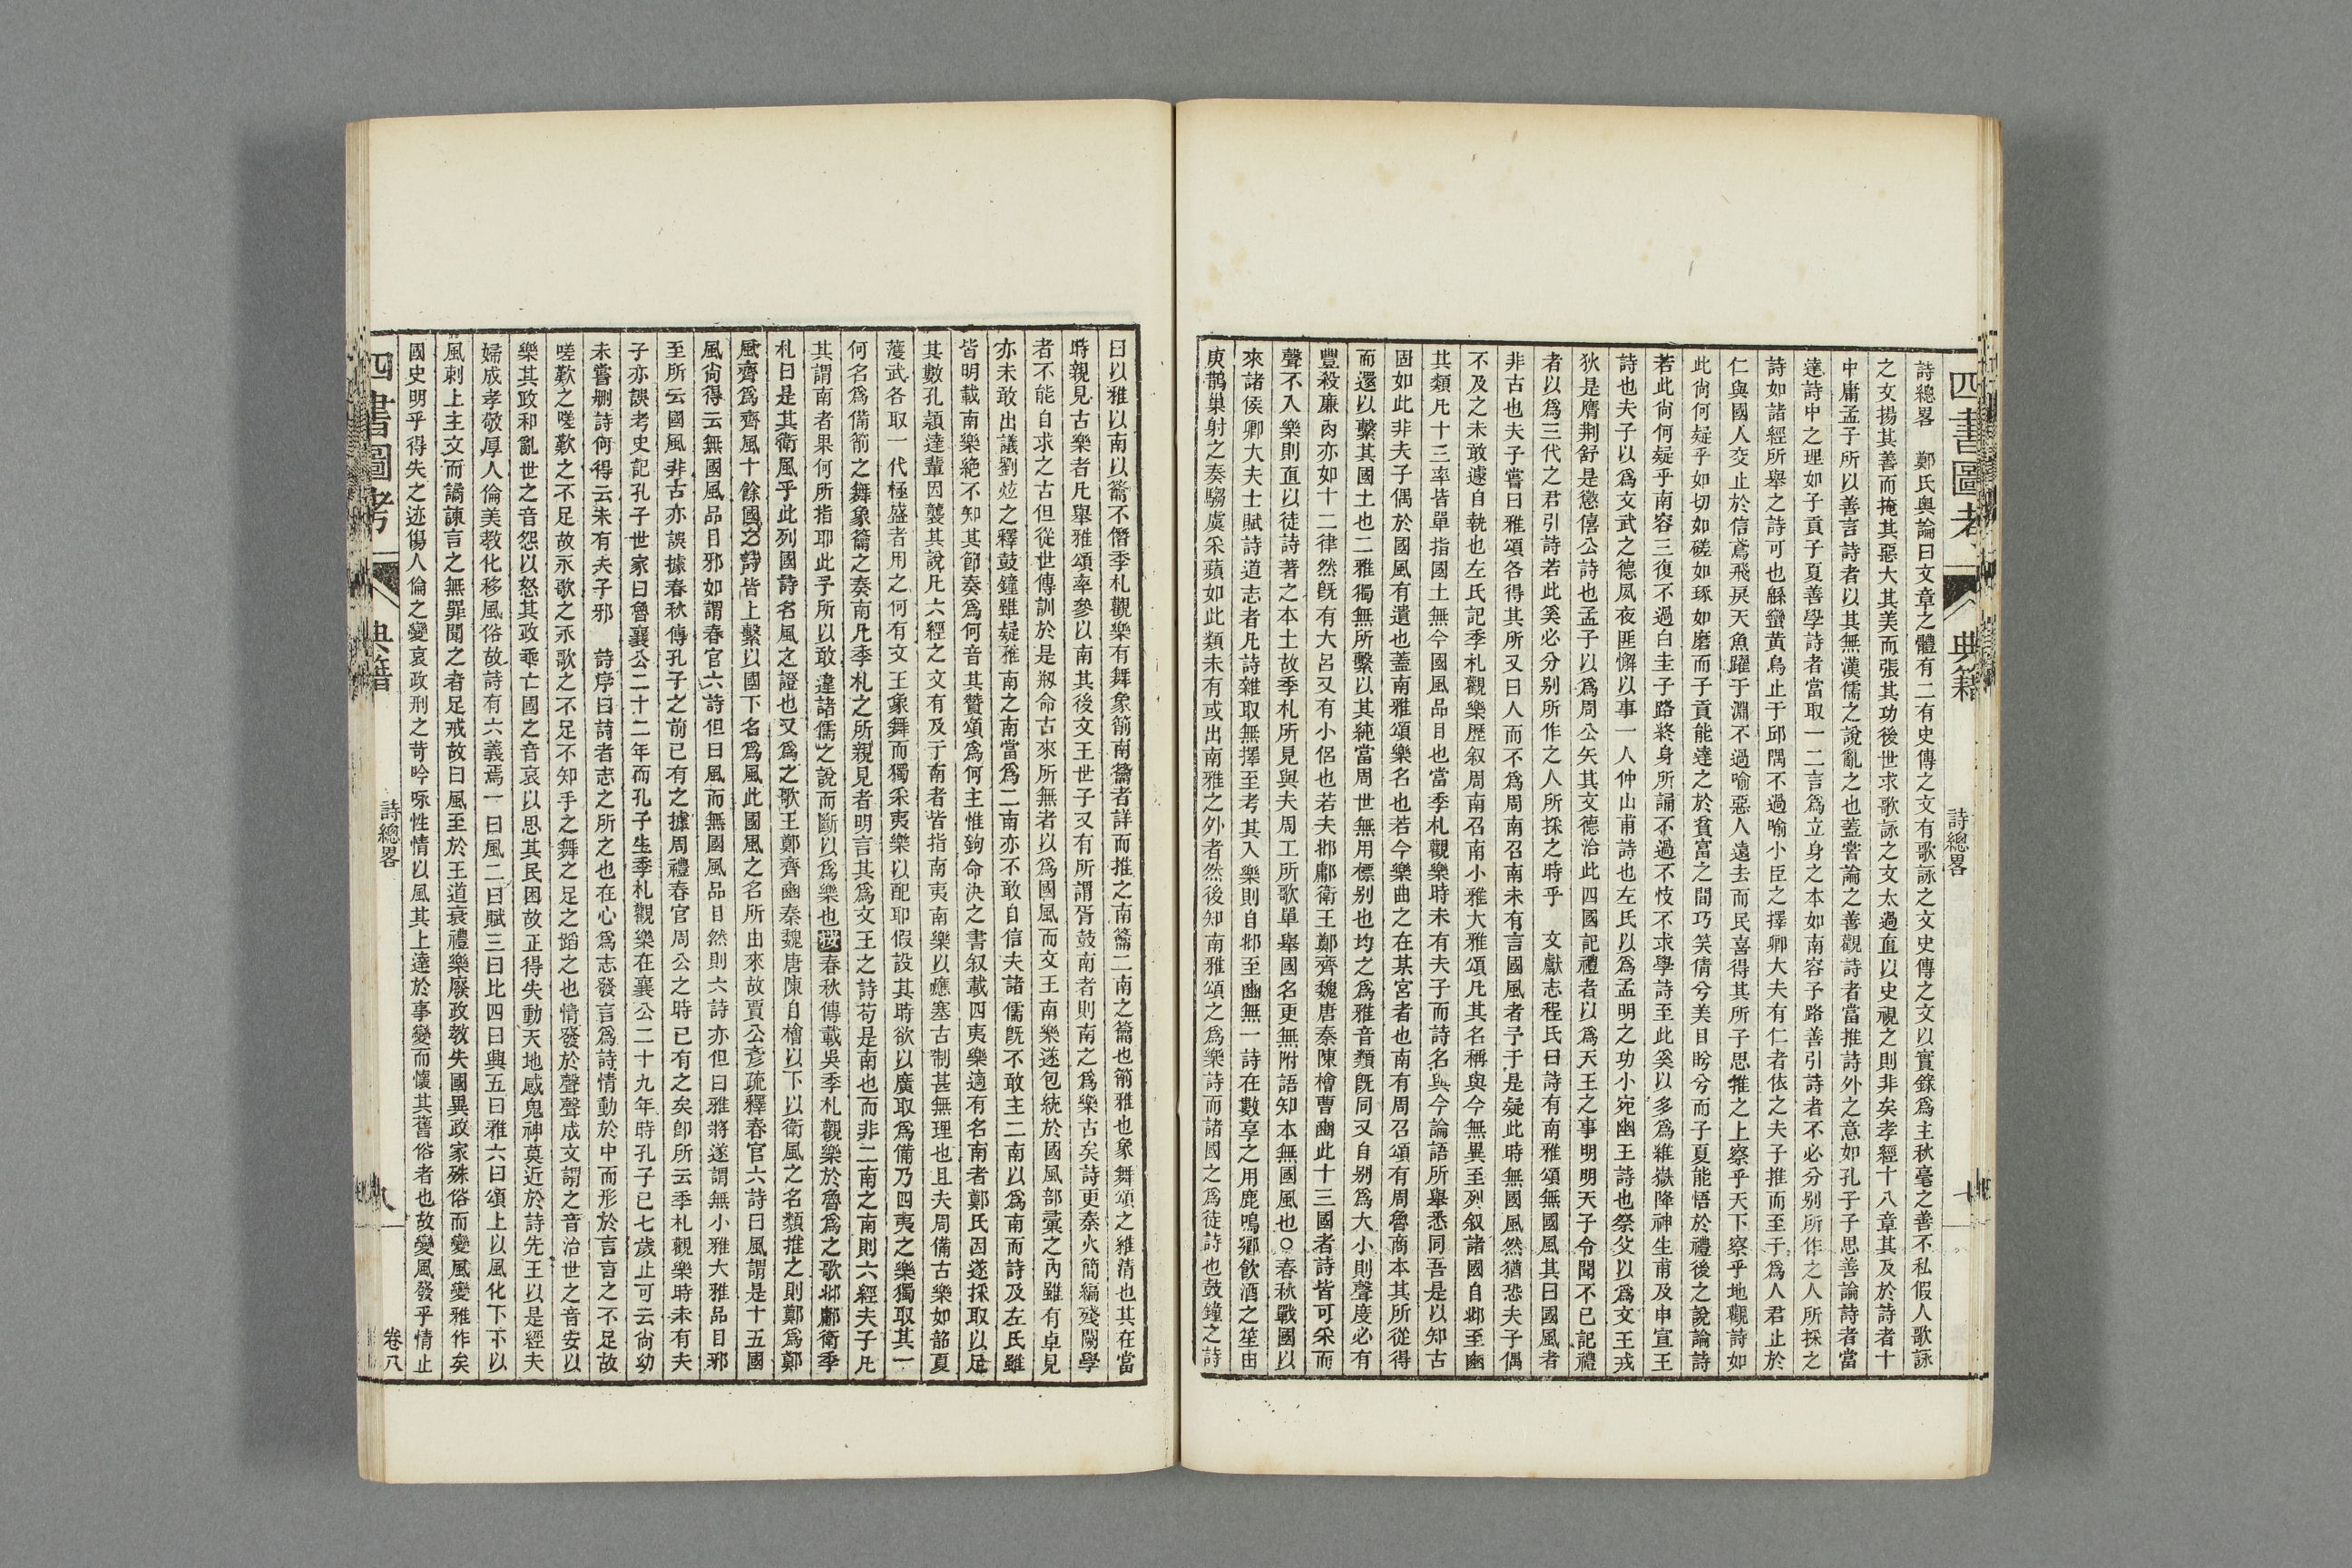 四書圖考
典籍
詩總畧
詩總畧　鄭氏奧論曰文章之體有二有史傳之文有歌詠之文史傳之文以實錄爲主秋毫之善不私假人歌詠
之文揚其善而掩其惡大其美而張其功後世求歌詠之文太過直以史視之則非矣孝經十八章其及於詩者十
中庸孟子所以善言詩者以其無漢儒之說亂之也蓋嘗論之善觀詩者當推詩外之意如孔子子思善論詩者當
達詩中之理如子貢子夏善學詩者當取一二言爲立身之本如南容子路善引詩者不必分别所作之人所採之
詩如諸經所舉之詩可也緜蠻黃鳥止于邱隅不過喻小臣之擇卿大夫有仁者依之夫子推而至于爲人君止於
仁與國人交止於信鳶飛戾天魚躍于淵不過喻惡人遠去而民喜得其所子思推之上察乎天下察乎地觀詩如
此尙何疑乎如切如磋如琢如磨而子貢能達之於貧富之間巧笑倩兮美目盼兮而子夏能悟於禮後之說論詩
若此尙何疑乎南容三復不過白圭子路終身所誦不過不忮不求學詩至此奚以多爲維嶽降神生甫及申宣王
詩也夫子以爲文武之德夙夜匪懈以事一人仲山甫詩也左氏以爲孟明之功小宛幽王詩也祭父以爲文王戎
狄是膺荆舒是懲僖公詩也孟子以爲周公矢其文德洽此四國記禮者以爲天王之事明明天子令聞不已記禮
者以爲三代之君引詩若此奚必分别所作之人所採之時乎　文獻志程氏曰詩有南雅頌無國風其曰國風者
非古也夫子嘗曰雅頌各得其所又曰人而不爲周南召南未有言國風者予于是疑此時無國風然猶恐夫子偶
不及之未敢遽自執也左氏記季札觀樂歷叙周南召南小雅大雅頌凡其名稱與今無異至列叙諸國自邶至豳
其類凡十三率皆單指國土無今國風品目也當季札觀樂時未有夫子而詩名與今論語所舉悉同吾是以知古
固如此非夫子偶於國風有遺也蓋南雅頌樂名也若今樂曲之在某宮者也南有周召頌有周魯商本其所從得
而還以繫其國土也二雅獨無所繫以其純當周世無用標别也均之爲雅音類旣同又自别爲大小則聲度必有
豐殺廉肉亦如十二律然旣有大呂又有小侶也若夫邶鄘衛王鄭齊魏唐秦陳檜曹豳此十三國者詩皆可采而
聲不入樂則直以徒詩著之本土故季札所見與夫周工所歌單舉國名更無附語知本無國風也○春秋戰國以
來諸侯卿大夫士賦詩道志者凡詩雜取無擇至考其入樂則自邶至豳無一詩在數享之用鹿鳴鄉飲酒之笙由
庚鵲巢射之奏騶虞采蘋如此類未有或出南雅之外者然後知南雅頌之爲樂詩而諸國之爲徒詩也鼓鐘之詩
曰以雅以南以籥不僭季札觀樂有舞象箾南籥者詳而推之南籥二南之籥也箾雅也象舞頌之維清也其在當
時親見古樂者凡舉雅頌率參以南其後文王世子又有所謂胥鼓南者則南之爲樂古矣詩更秦火簡編殘闕學
者不能自求之古但從世傳訓於是剏命古來所無者以爲國風而文王南樂遂包統於國風部彙之內雖有卓見
亦未敢出議劉炫之釋鼓鐘雖疑雅南之南當爲二南亦不敢自信夫諸儒旣不敢主二南以爲南而詩及左氏雖
皆明載南樂絶不知其節奏爲何音其贊頌爲何主惟鉤命決之書叙載四夷樂適有名南者鄭氏因遂採取以足
其數孔穎達輩因襲其說凡六經之文有及于南者皆指南夷南樂以應塞古制甚無理也且夫周備古樂如韶夏
濩武各取一代極盛者用之何有文王象舞而獨采夷樂以配耶假設其時欲以廣取爲備乃四夷之樂獨取其一
何名爲備箾之舞象籥之奏南凡季札之所親見者明言其爲文王之詩苟是南也而非二南之南則六經夫子凡
其謂南者果何所指耶此予所以敢違諸儒之說而斷以爲樂也按春秋傳載吳季札觀樂於魯爲之歌邶鄘衛季
札曰是其衛風乎此列國詩名風之證也又爲之歌王鄭齊豳秦魏唐陳自檜以下以衛風之名類推之則鄭爲鄭
風齊爲齊風十餘國之詩皆上繫以國下名爲風此國風之名所由來故賈公彥疏釋春官六詩曰風謂是十五國
風尙得云無國風品目邪如謂春官六詩但曰風而無國風品目然則六詩亦但曰雅將遂謂無小雅大雅品目邪
至所云國風非古亦誤據春秋傳孔子之前已有之據周禮春官周公之時已有之矣卽所云季札觀樂時未有夫
子亦誤考史記孔子世家曰魯襄公二十二年而孔子生季札觀樂在襄公二十九年時孔子已七歲止可云尙幼
未嘗刪詩何得云未有夫子邪　詩序曰詩者志之所之也在心爲志發言爲詩情動於中而形於言言之不足故
嗟歎之嗟歎之不足故永歌之永歌之不足不知手之舞之足之蹈之也情發於聲聲成文謂之音治世之音安以
樂其政和亂世之音怨以怒其政乖亡國之音哀以思其民困故正得失動天地感鬼神莫近於詩先王以是經夫
婦成孝敬厚人倫美教化移風俗故詩有六義焉一曰風二曰賦三曰比四曰興五曰雅六曰頌上以風化下下以
風刺上主文而譎諫言之無罪聞之者足戒故曰風至於王道衰禮樂廢政教失國異政家殊俗而變風變雅作矣
國史明乎得失之迹傷人倫之變哀政刑之苛吟咏性情以風其上達於事變而懷其舊俗者也故變風發乎情止
四書圖考
典籍
詩總畧
八
卷八